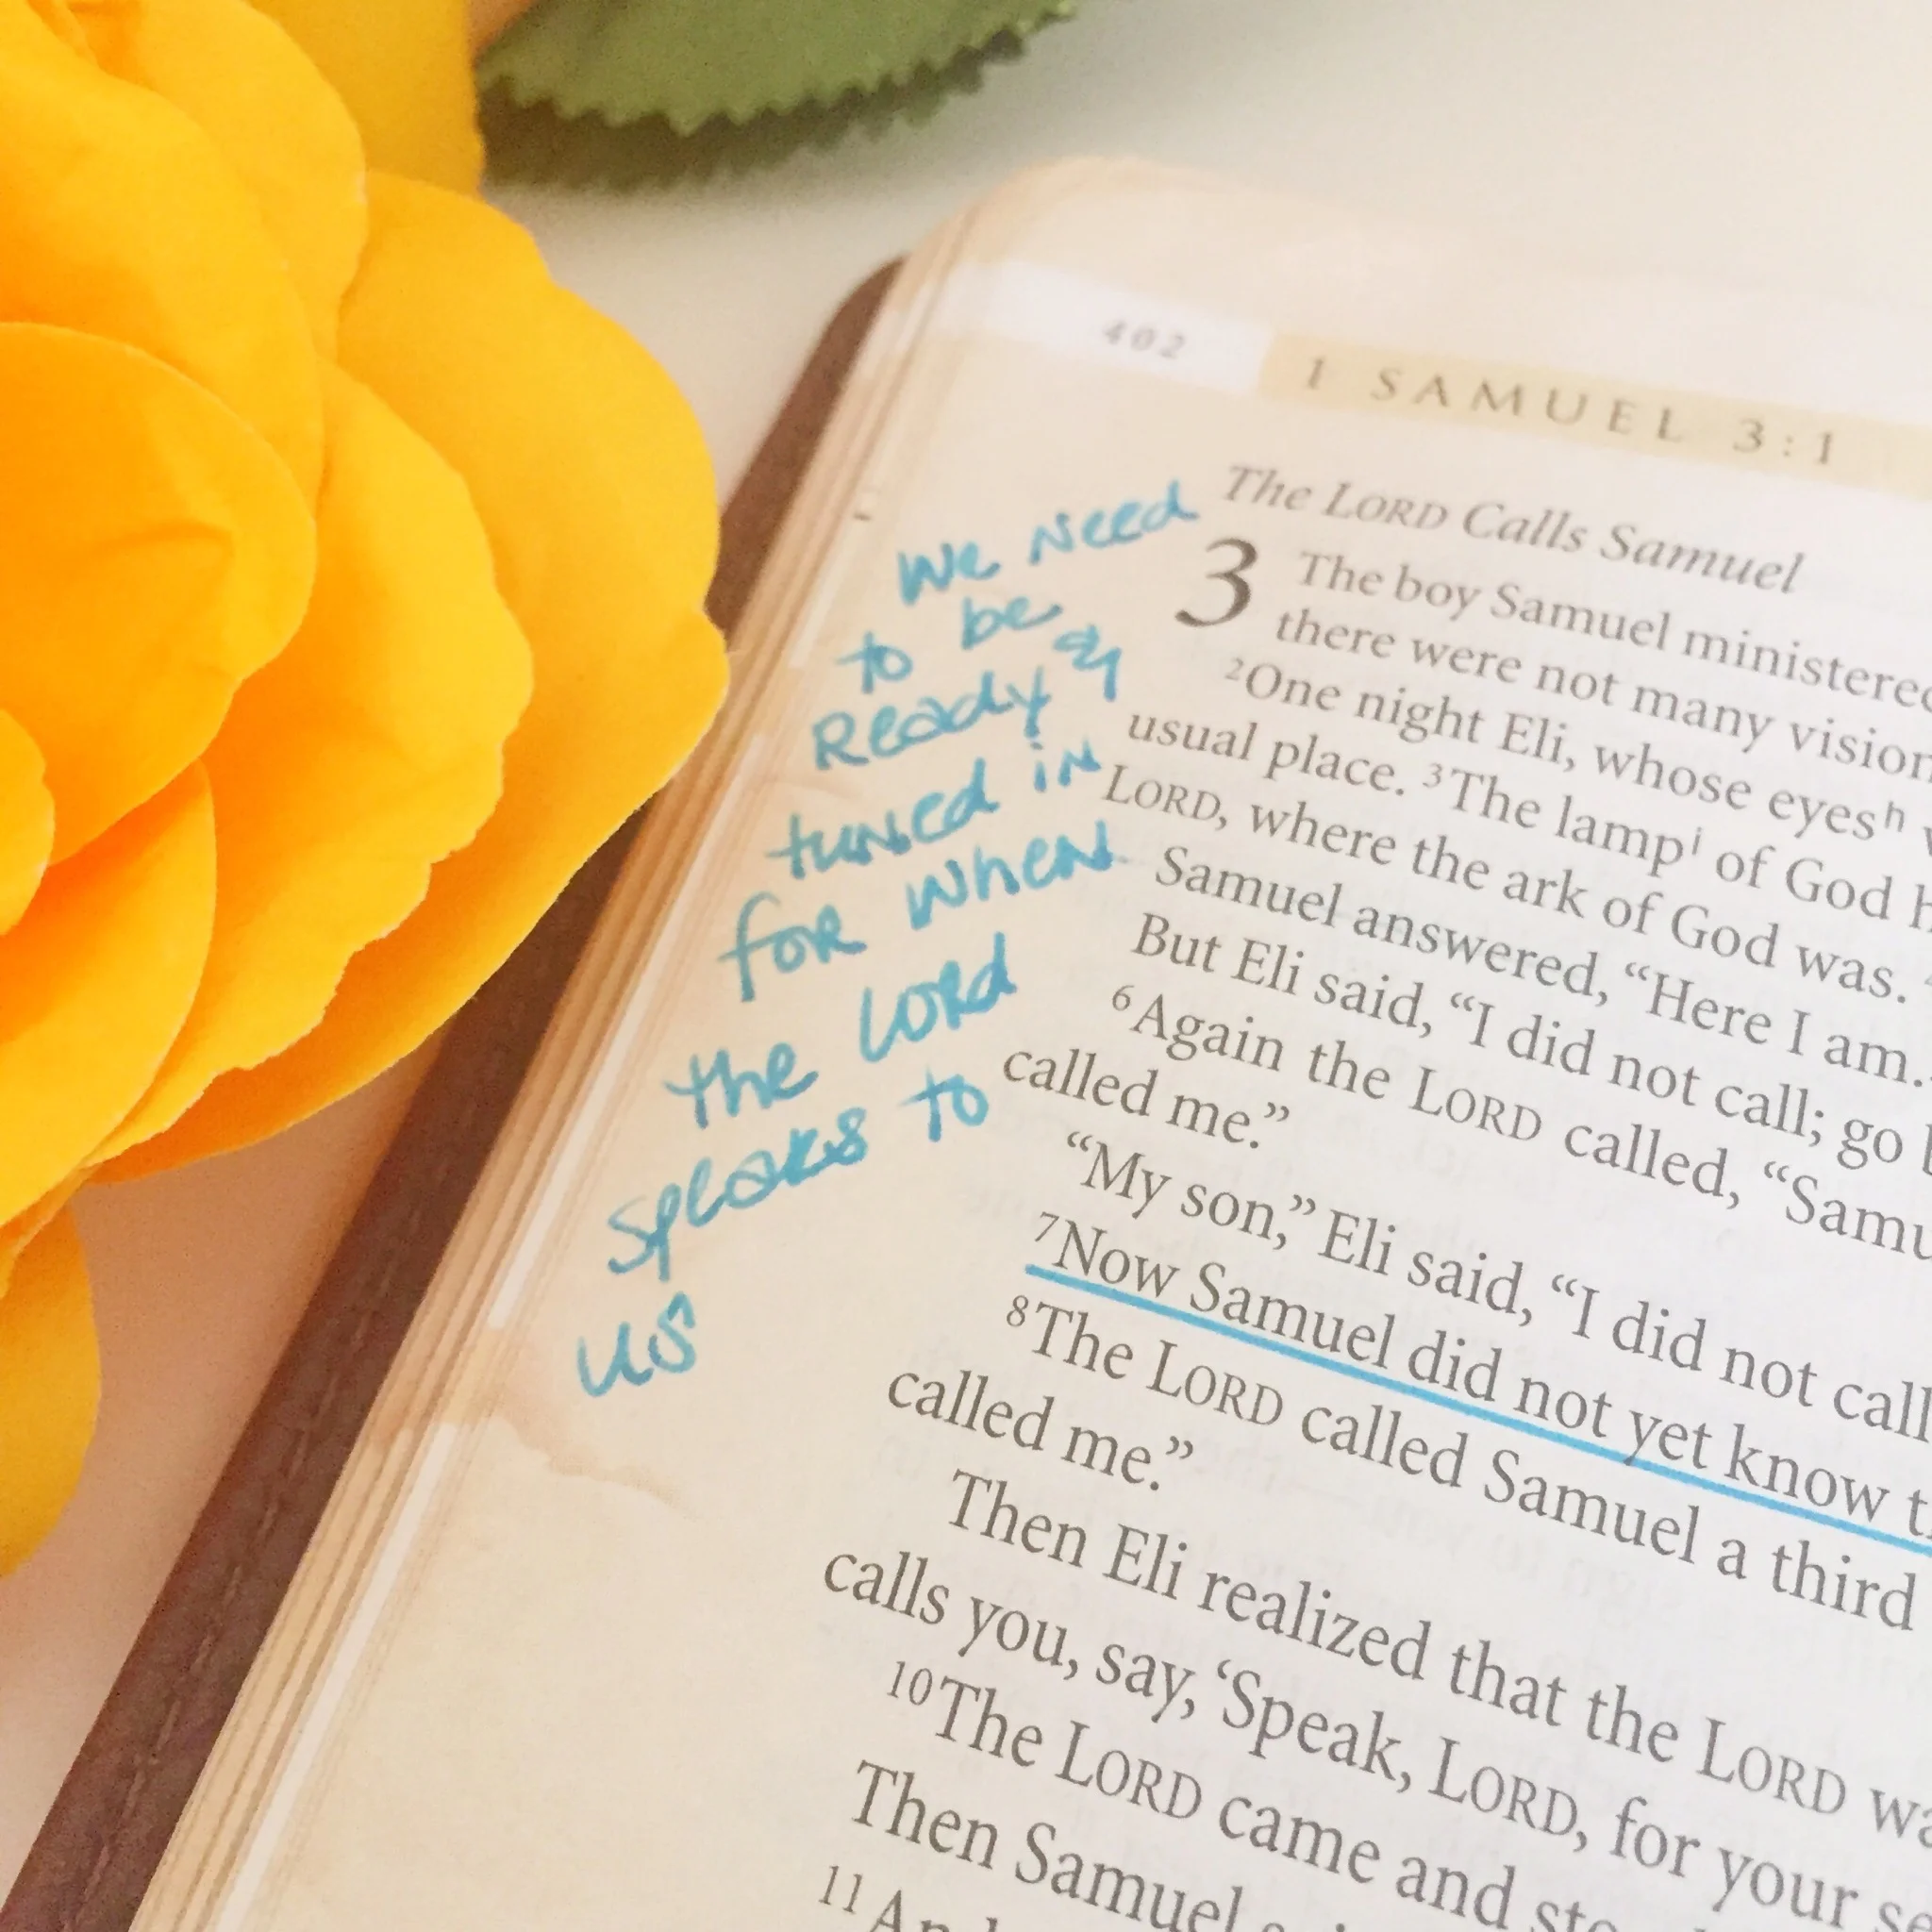 402
1 SAMUEL 3:1
we need
to be
Ready &
tuned in
for when
the Lord
speaks to
us
The LORD Calls Samuel
3 The boy Samuel ministered
there were not many vision
²One night Eli, whose eyesʰ
usual place. ³The lampⁱ of God
LORD, where the ark of God was.
Samuel answered, “Here I am.
But Eli said, “I did not call; go
⁶Again the LORD called, “Samu
called me.”
“My son,” Eli said, “I did not call
⁷Now Samuel did not yet know
⁸The LORD called Samuel a third
called me.”
Then Eli realized that the LORD wa
calls you, say, ‘Speak, LORD, for your se
¹⁰The LORD came and sto
Then Samuel
¹¹